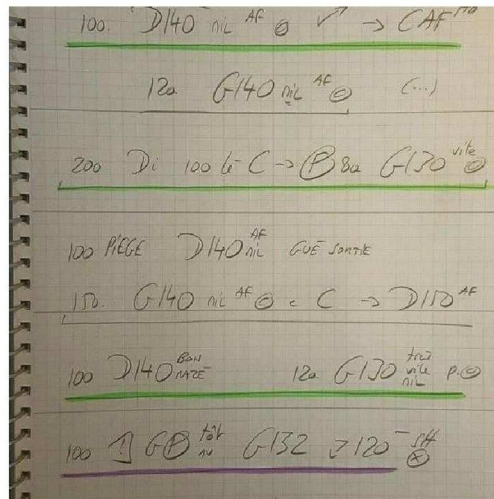 100. D140 nil AF ⊖ → CAF
120 G140 nil AF ⊖ (...)
200 Di 100 C → Ⓟ 80 G130 vite ⊖
100 PIÈGE D140 AF nil GUÉ SORTIE
150. G140 nil AF ⊖ C → D150 AF
100 D140 BON 120 G130 très vite nil P.⊖
100 GⓅ tôt G132 120 ⊗